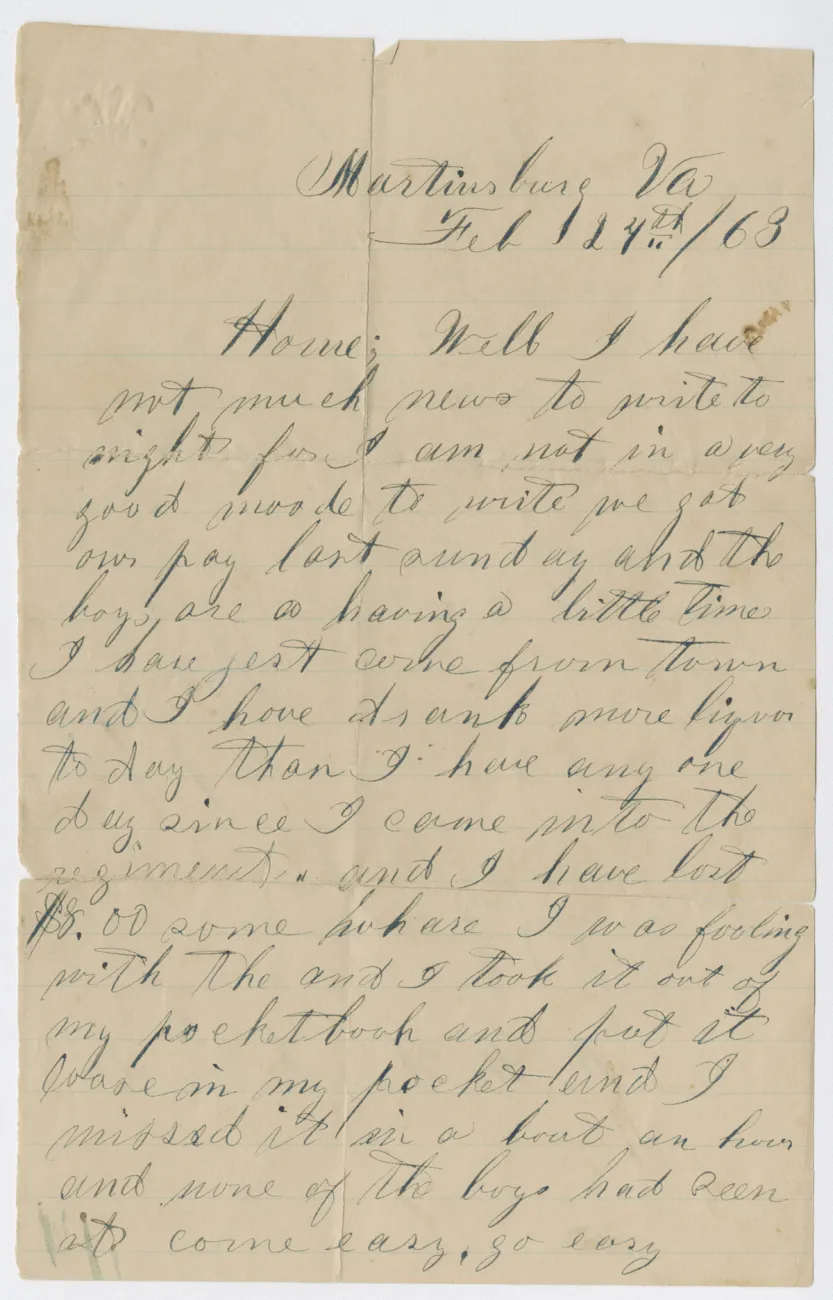 Martinsburg Va
Feb 24th /63
Home; Well I have
not much news to write to
night for I am not in a very
good moode to write we got
our pay last sunday and the
boys are a having a little time
I have jest come from town
and I have drank more liqvor
to day than I have any one
day since I came into the
regiment. and I have lost
$8.00 some whare I was fooling
with the and I took it out of
my pocketbook and put it
loose in my pocket and I
missed it in a bout an hour
and none of the boys had seen
it come easy, go easy